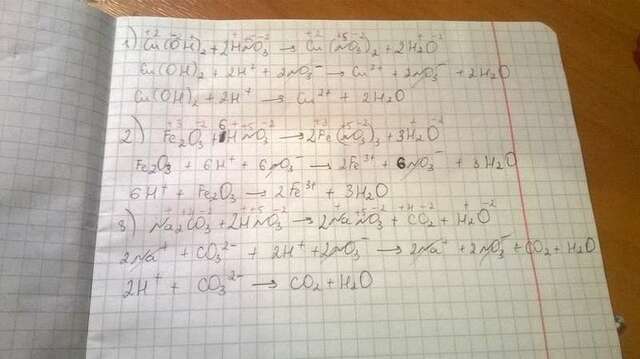 1) Cu(OH)₂ + 2HNO₃ → Cu(NO₃)₂ + 2H₂O
Cu(OH)₂ + 2H⁺ + 2NO₃⁻ → Cu²⁺ + 2NO₃⁻ + 2H₂O
Cu(OH)₂ + 2H⁺ → Cu²⁺ + 2H₂O
2) Fe₂O₃ + 6HNO₃ → 2Fe(NO₃)₃ + 3H₂O
Fe₂O₃ + 6H⁺ + 6NO₃⁻ → 2Fe³⁺ + 6NO₃⁻ + 3H₂O
6H⁺ + Fe₂O₃ → 2Fe³⁺ + 3H₂O
3) Na₂CO₃ + 2HNO₃ → 2NaNO₃ + CO₂ + H₂O
2Na⁺ + CO₃²⁻ + 2H⁺ + 2NO₃⁻ → 2Na⁺ + 2NO₃⁻ + CO₂ + H₂O
2H⁺ + CO₃²⁻ → CO₂ + H₂O